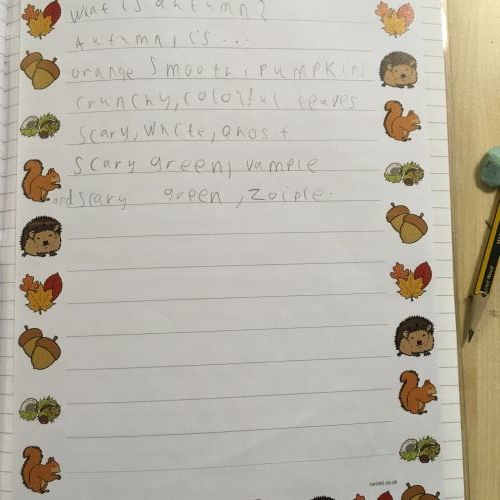 What is autumn?
Autumn, is...
orange smooth, pumpkins
crunchy, colorful leaves
scary, white, ghost
scary green, vampie
and scary green, zoiple.
twinkl.co.uk